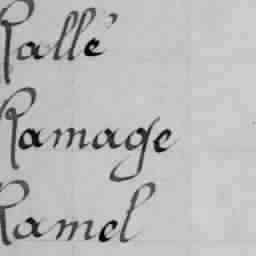 Rallé
Ramage
Ramel